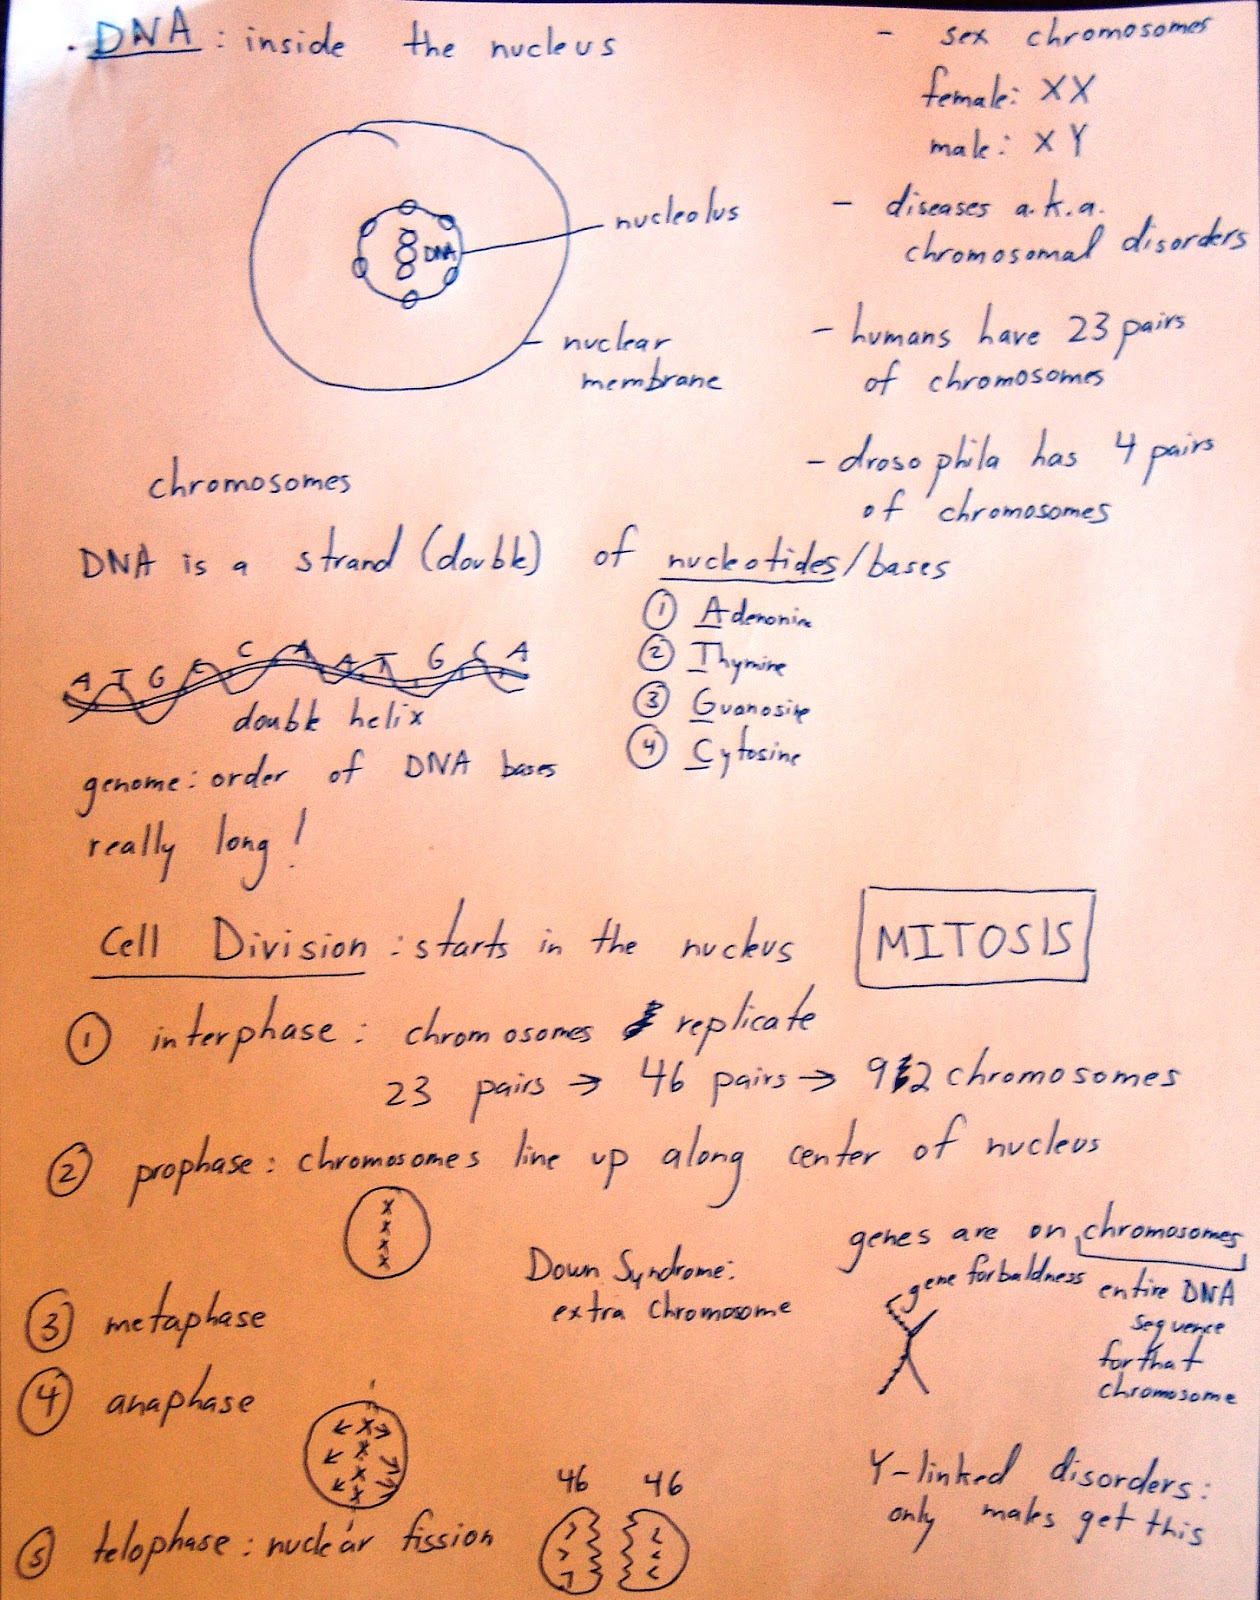 · DNA : inside the nucleus
nucleolus
DNA
nuclear
membrane
- sex chromosomes
female: XX
male: XY
- diseases a.k.a.
chromosomal disorders
- humans have 23 pairs
of chromosomes
- drosophila has 4 pairs
of chromosomes
chromosomes
DNA is a strand (double) of nucleotides/bases
① Adenonine
② Thymine
③ Guanosine
④ Cytosine
A T G C C A A T G C A
double helix
genome: order of DNA bases
really long!
Cell Division : starts in the nucleus
MITOSIS
① interphase: chromosomes replicate
23 pairs → 46 pairs → 92 chromosomes
② prophase: chromosomes line up along center of nucleus
x
x
x
x
Down Syndrome:
extra chromosome
genes are on chromosomes
gene for baldness
entire DNA
sequence
for that
chromosome
③ metaphase
④ anaphase
x
x
x
x
⑤ telophase: nuclear fission
46 46
Y-linked disorders:
only males get this